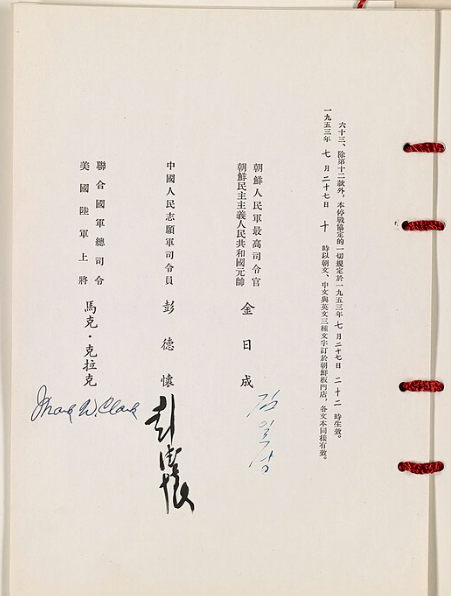 六十三、除第十二款外，本停戰協定的一切規定於一九五三年 七 月二十七日 二十二 時生效。
一九五三年 七 月二十七日 十 時以朝文、中文與英文三種文字訂於朝鮮板門店，各文本同樣有效。
朝鮮人民軍最高司令官
朝鮮民主主義人民共和國元帥
金日成
김일성
中國人民志願軍司令員
彭德懷
彭德懷
聯合國軍總司令
美國陸軍上將
馬克·克拉克
Mark W. Clark